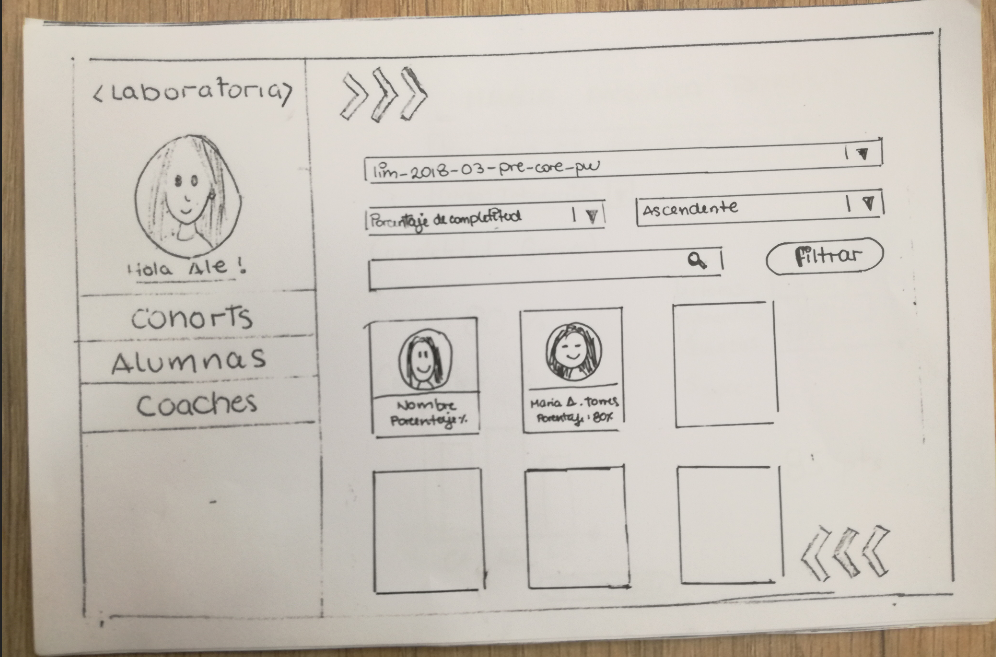 <Laboratoria>
Hola Ale!
Cohorts
Alumnas
Coaches
lim-2018-03-pre-core-pw
Porcentaje de completitud
Ascendente
Filtrar
Nombre
Porcentaje %
Maria A. Torres
Porcentaje: 80%